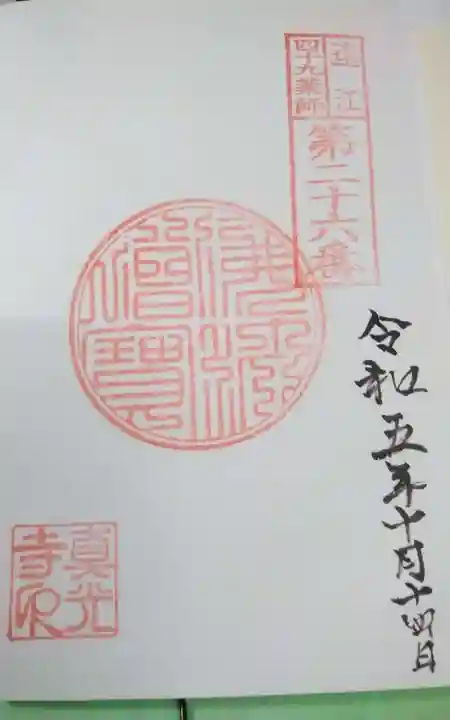 遠江
四十九薬師
第二十六番
令和五年十月十四日
佛法
僧寶
真光
寺印